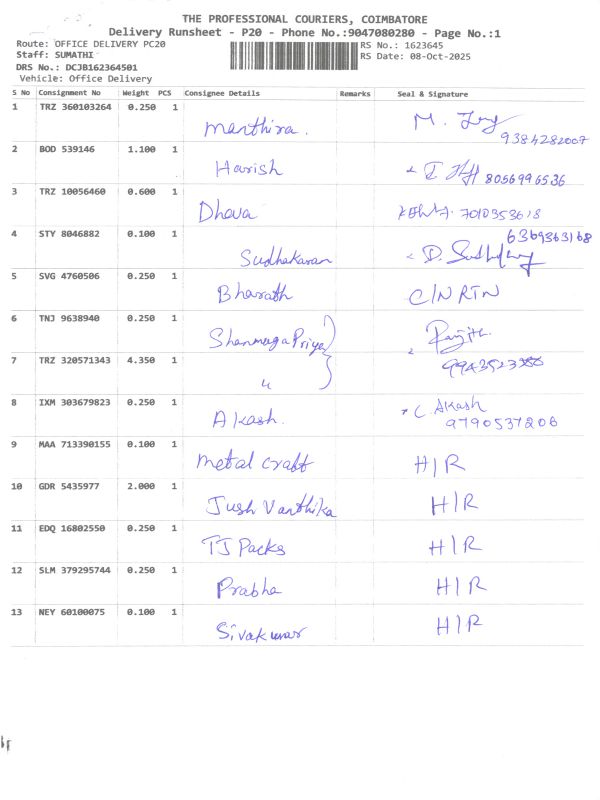 THE PROFESSIONAL COURIERS, COIMBATORE
Delivery Runsheet - P20 - Phone No.:9047080280 - Page No.:1
Route: OFFICE DELIVERY PC20 RS No.: 1623645
Staff: SUMATHI RS Date: 08-Oct-2025
DRS No.: DCJB162364501
Vehicle: Office Delivery
S No Consignment No Weight PCS Consignee Details Remarks Seal & Signature
1 TRZ 360103264 0.250 1 Manthira. M.
9384282007
2 BOD 539146 1.100 1 Harish 8056996536
3 TRZ 10056460 0.600 1 Dhava 7010353618
6369363168
4 STY 8046882 0.100 1 Sudhakaran D.
5 SVG 4760506 0.250 1 Bharath C/N RTN
6 TNJ 9638940 0.250 1 ShanmugaPriya
7 TRZ 320571343 4.350 1 "
8 IXM 303679823 0.250 1 Akash. C. Akash
9790537206
9 MAA 713390155 0.100 1 metal craft H/R
10 GDR 5435977 2.000 1 Jush Vanthika H/R
11 EDQ 16802550 0.250 1 TJ Packs H/R
12 SLM 379295744 0.250 1 Prabha H/R
13 NEY 60100075 0.100 1 Sivakumar H/R